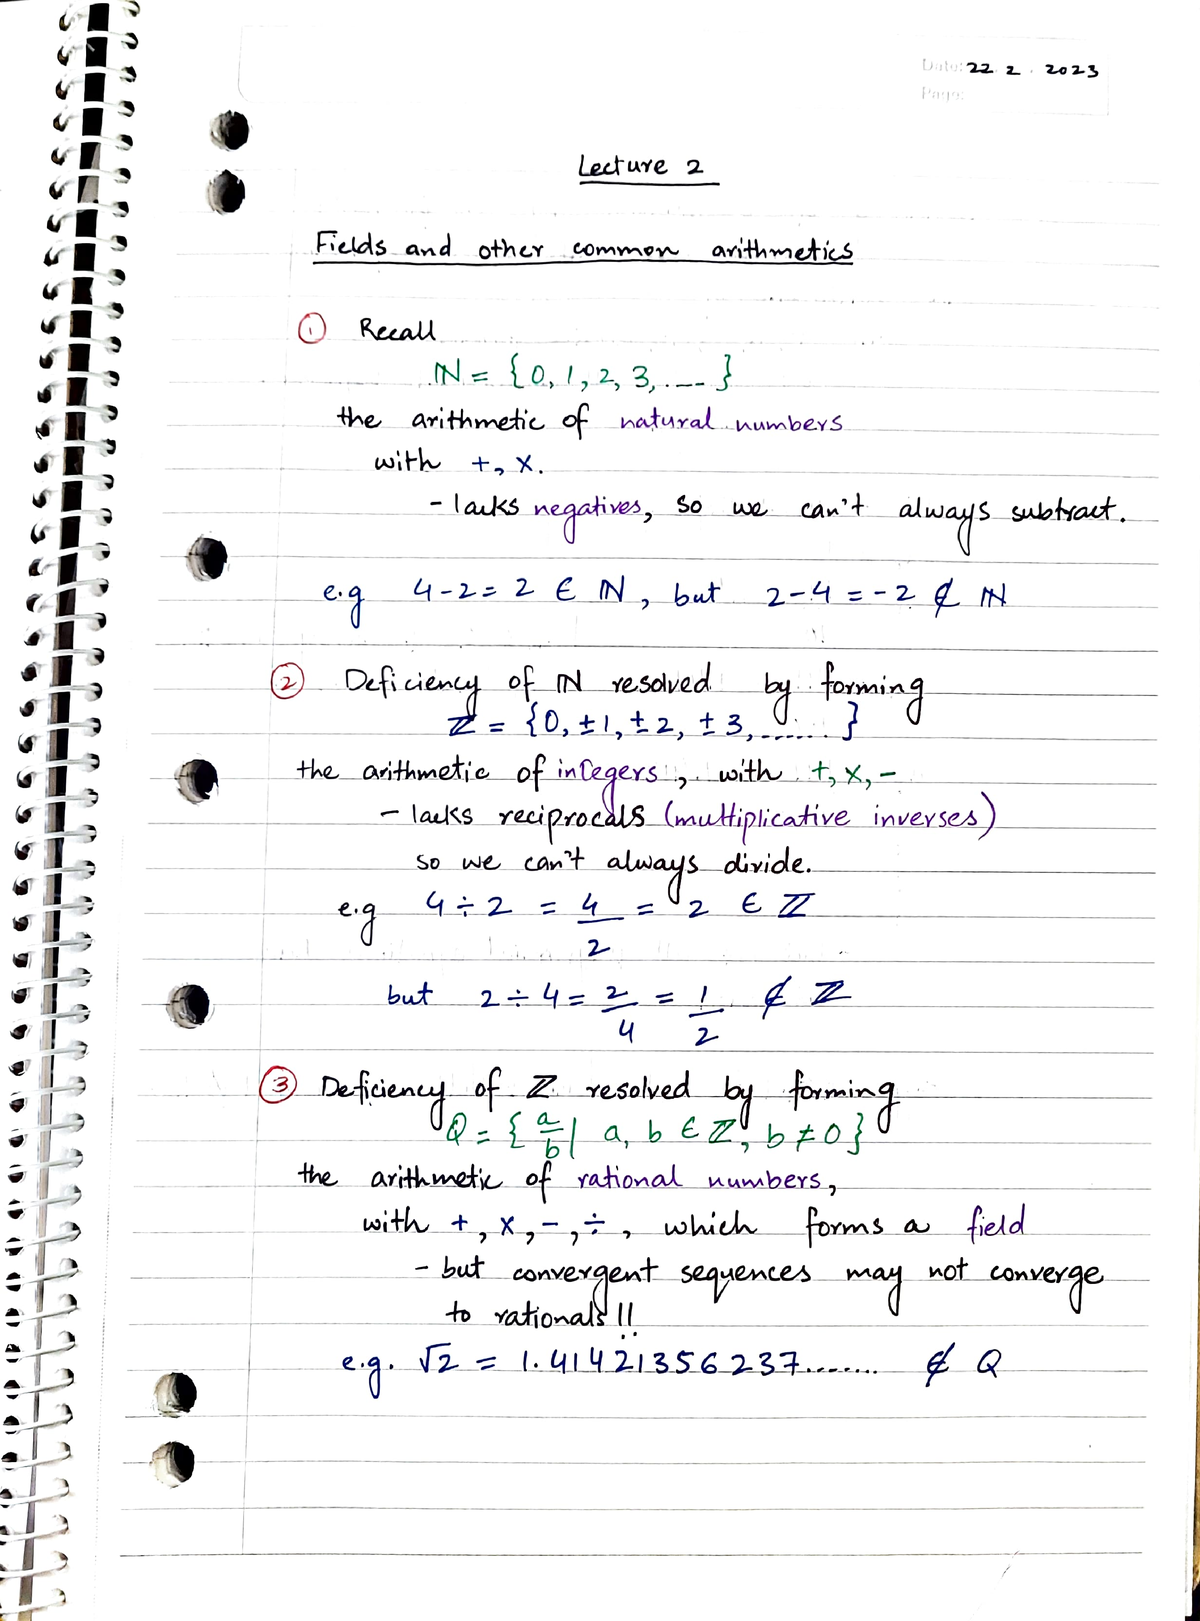 Date: 22. 2. 2023
Page:
Lecture 2
Fields and other common arithmetics
① Recall
ℕ = {0, 1, 2, 3, .... }
the arithmetic of natural numbers
with +, ×.
- lacks negatives, so we can't always subtract.
e.g 4-2 = 2 ∈ ℕ, but 2-4 = -2 ∉ ℕ
② Deficiency of ℕ resolved by forming
ℤ = {0, ±1, ±2, ±3, ....... }
the arithmetic of integers, with +, ×, -
- lacks reciprocals (multiplicative inverses)
so we can't always divide.
e.g 4 ÷ 2 = 4/2 = 2 ∈ ℤ
but 2 ÷ 4 = 2/4 = 1/2 ∉ ℤ
③ Deficiency of ℤ resolved by forming
ℚ = { a/b | a, b ∈ ℤ, b ≠ 0 }
the arithmetic of rational numbers,
with +, ×, -, ÷, which forms a field
- but convergent sequences may not converge
to rationals!!
e.g. √2 = 1.41421356237........ ∉ ℚ